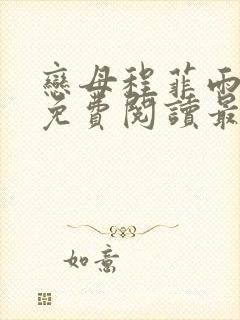 戀母程菲雨
免費閱讀最
如意